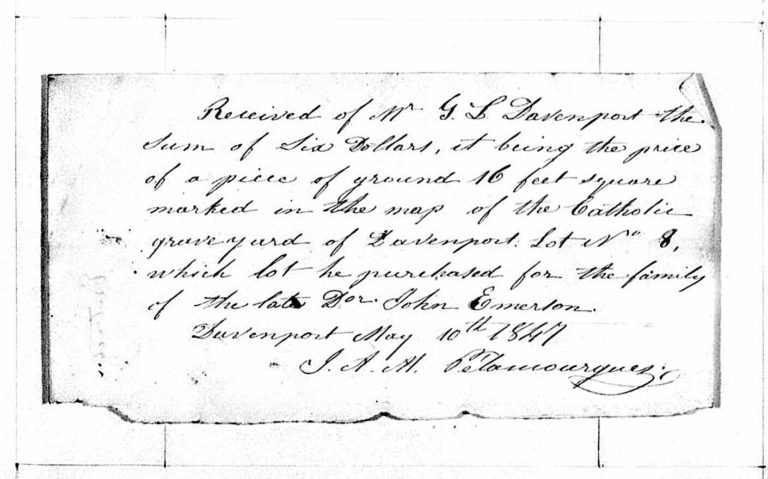 Received of Mr G. L Davenport the
Sum of Six Dollars, it being the price
of a piece of ground 16 feet square
marked in the map of the Catholic
grave yard of Davenport. Lot No 8,
which lot he purchased for the family
of the late Dor. John Emerson.
Davenport May 10th 1847
J. A. M. Pelamourgues.